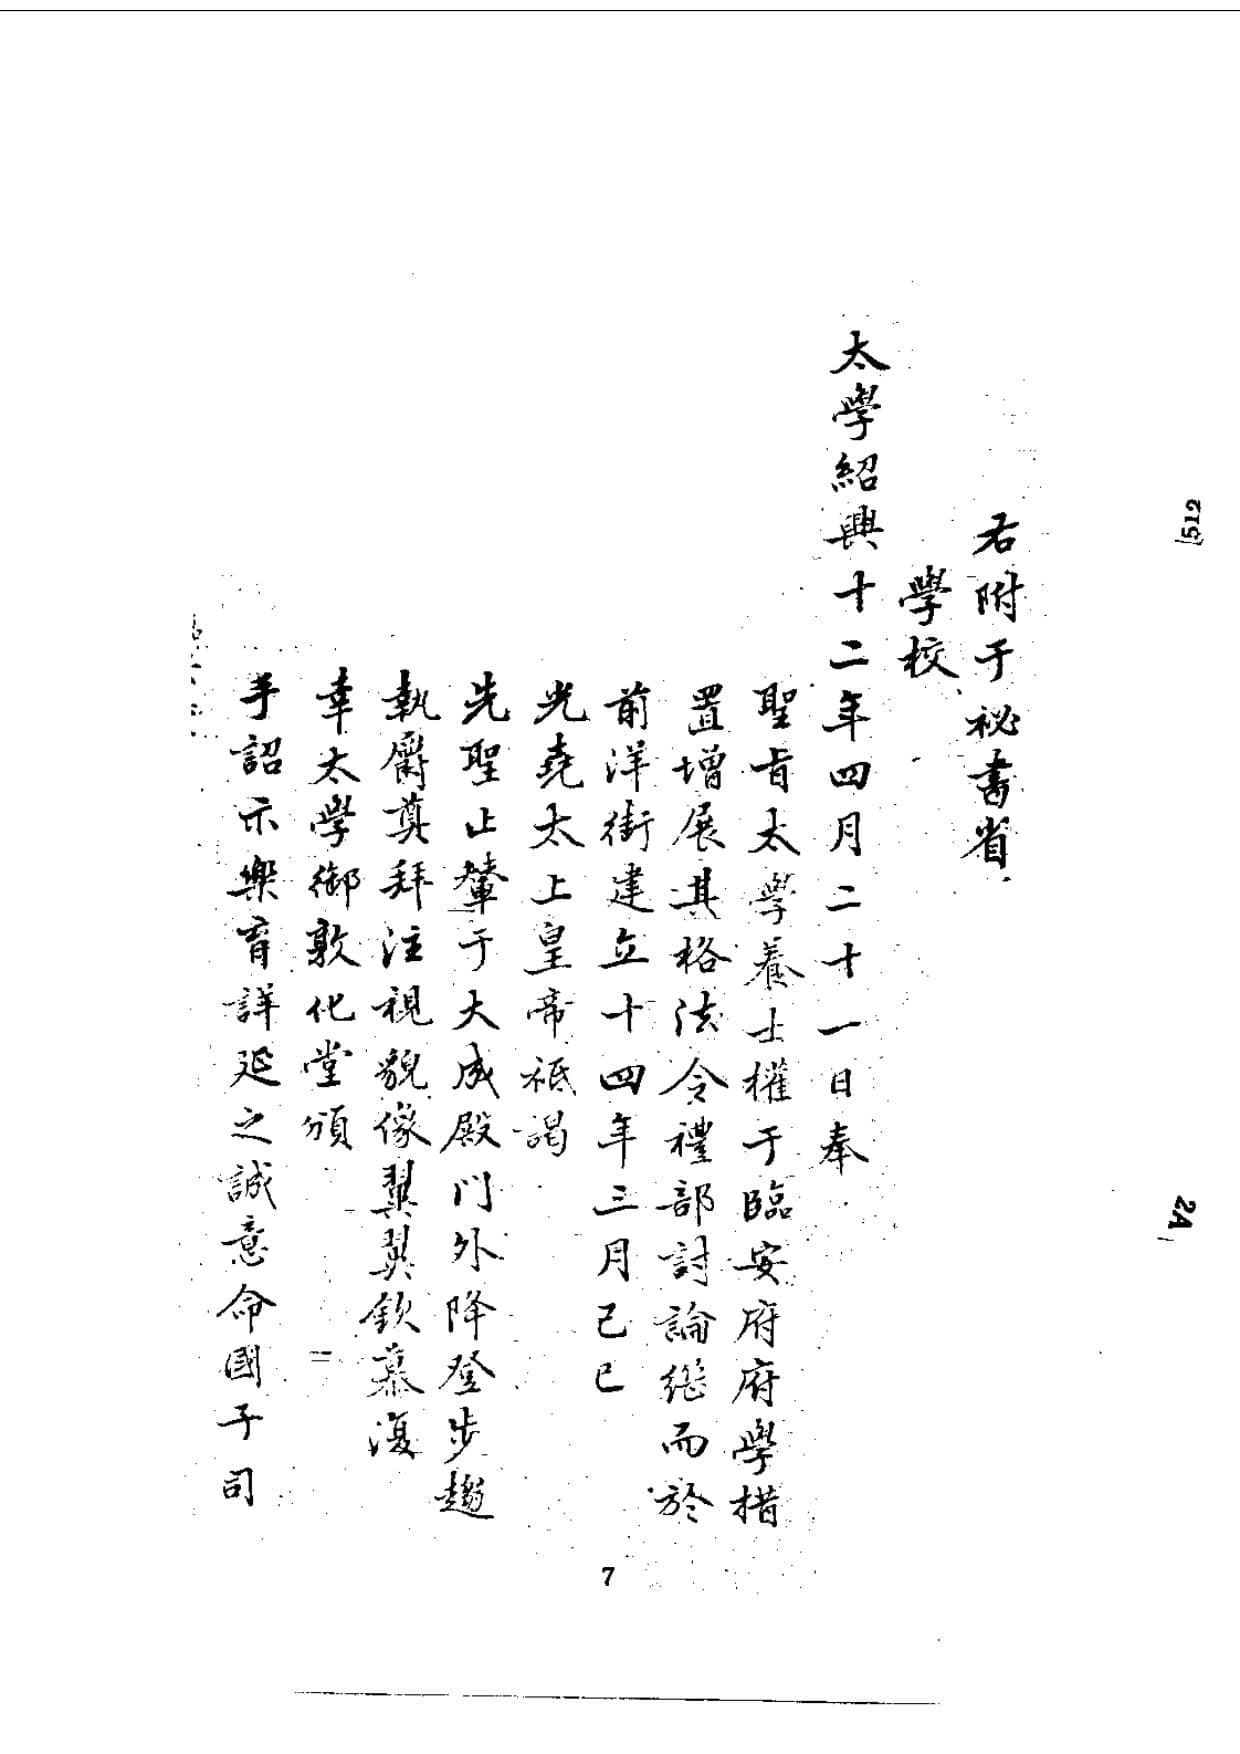 右附于祕書省
學校
太學紹興十二年四月二十一日奉
聖旨太學養士權于臨安府府學措
置增展其格法令禮部討論繼而於
前洋街建立十四年三月己巳
光堯太上皇帝祗謁
先聖止輦于大成殿門外降登步趨
執爵奠拜注視貌像翼翼欽慕復
幸太學御敦化堂頒
手詔示樂育詳延之誠意命國子司
512
2A
7